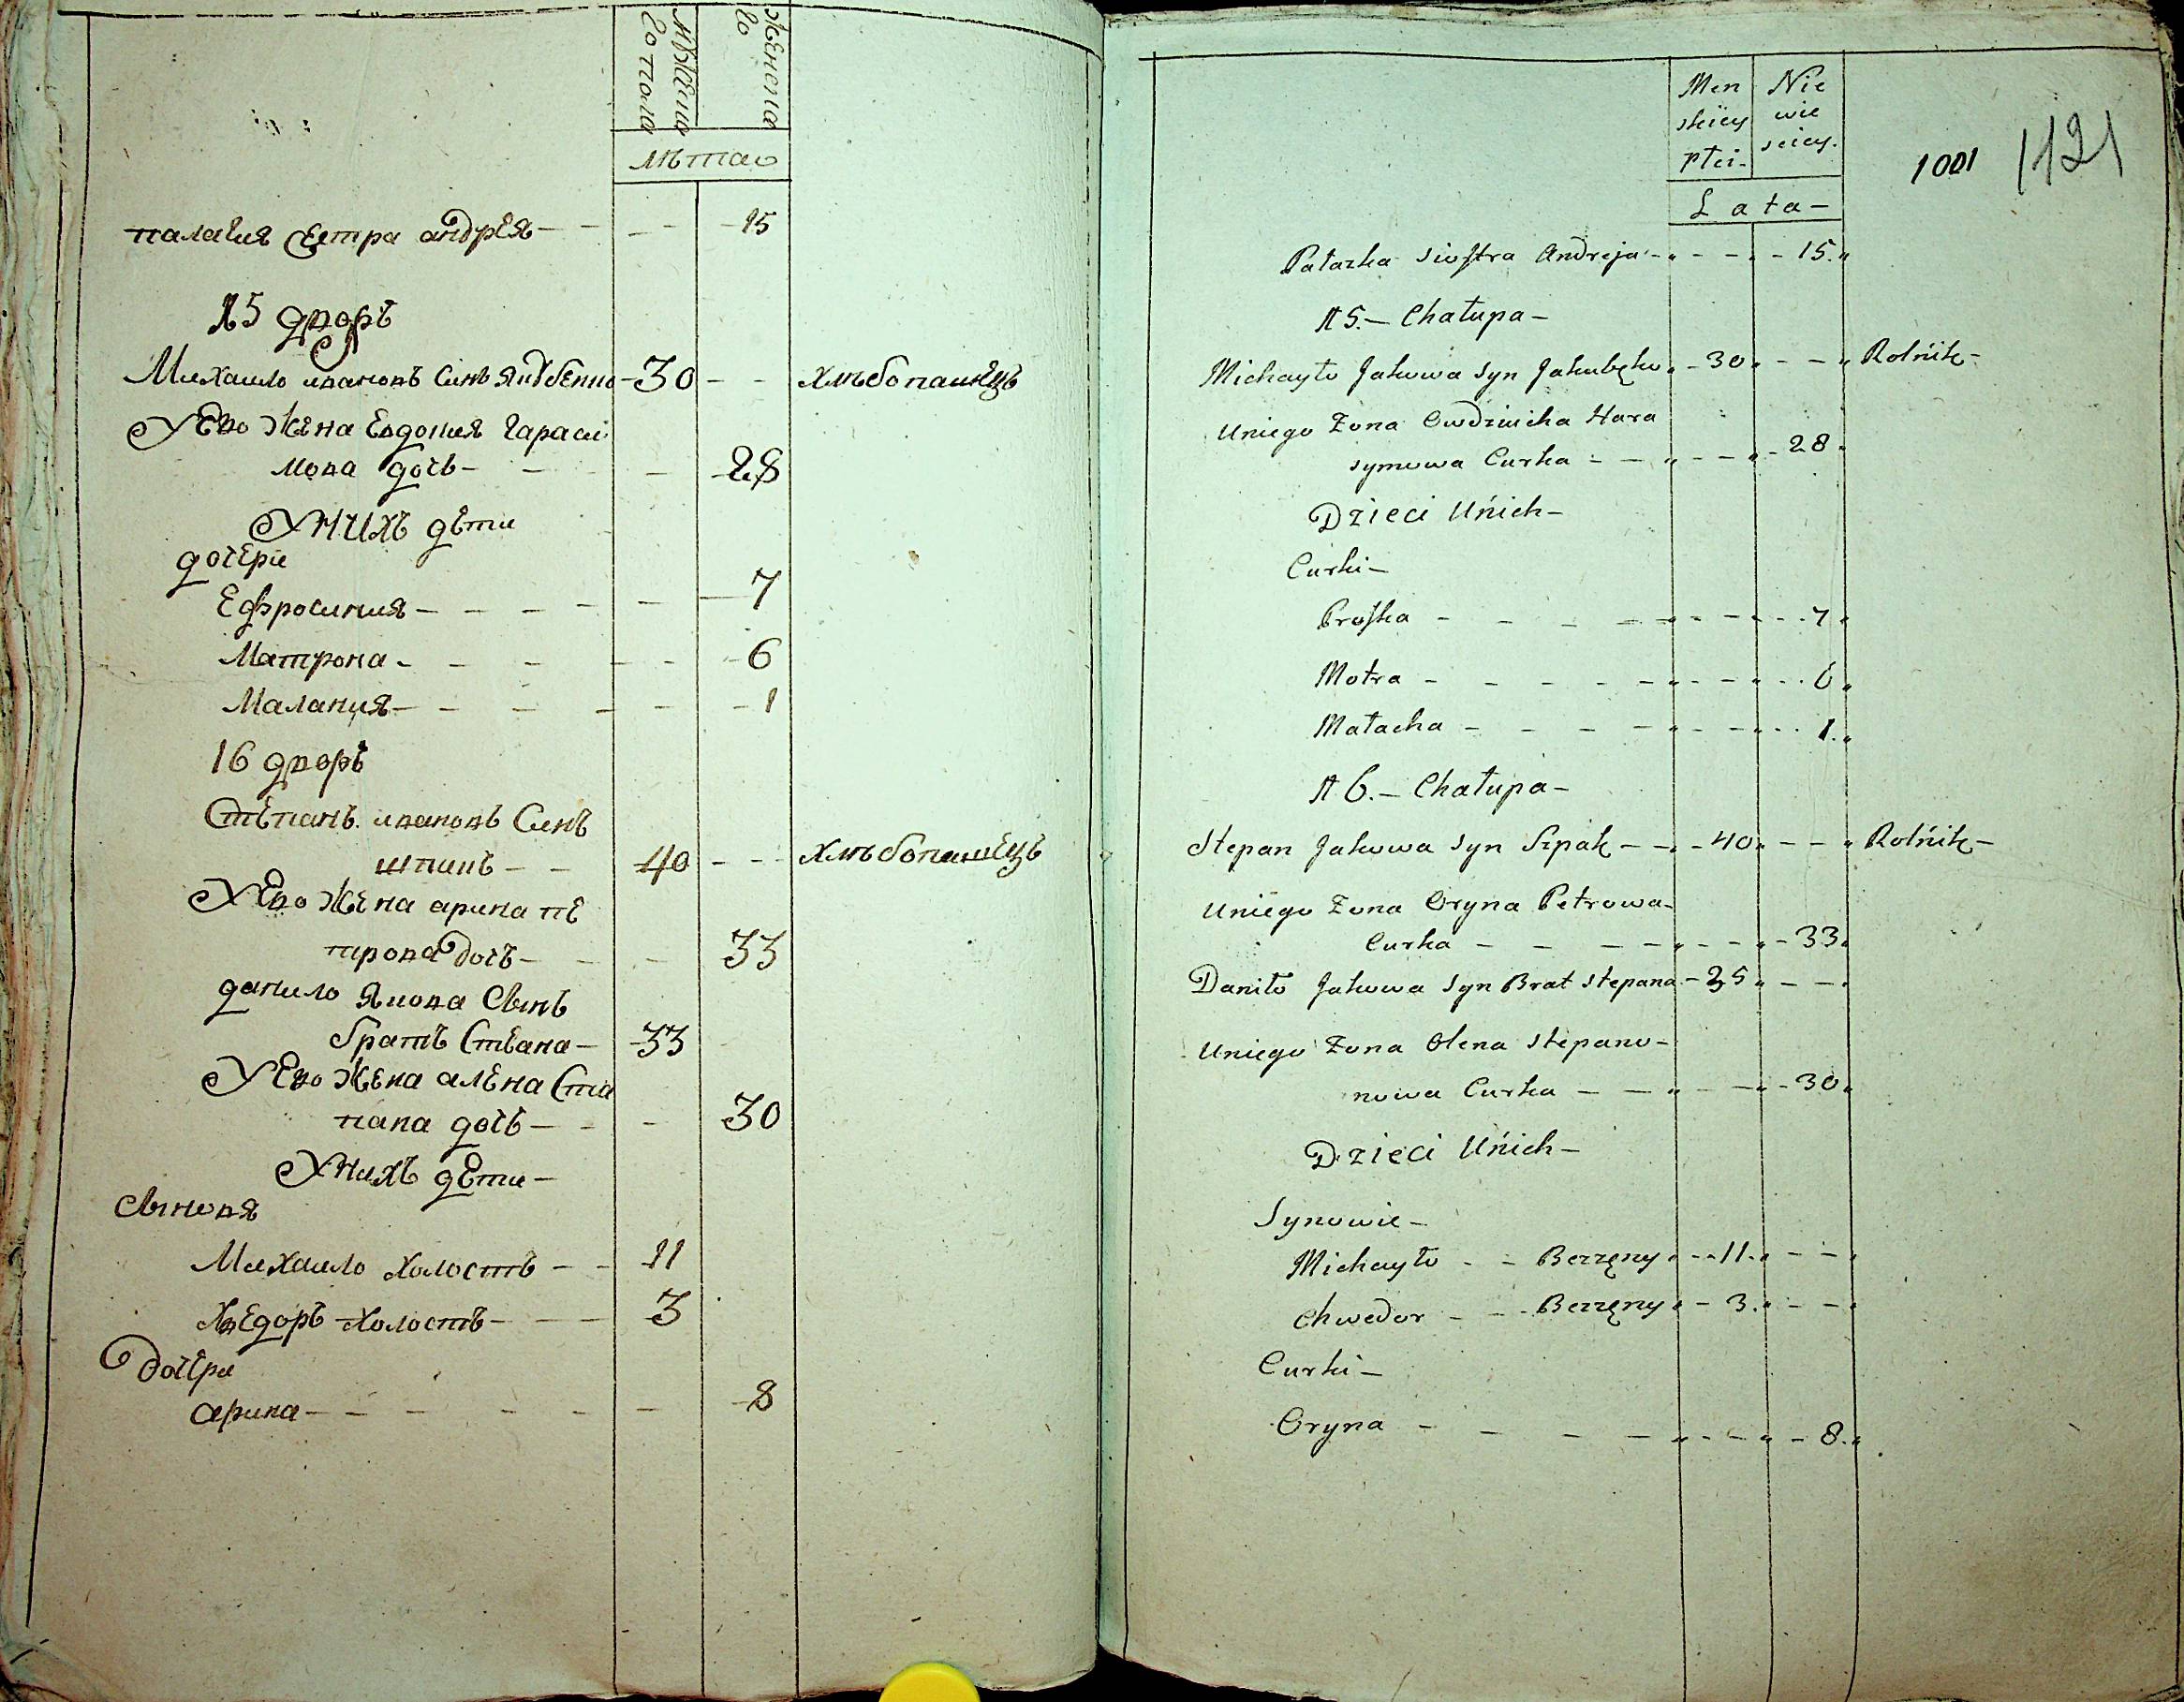 Мужеска
го пола
Женска
го
лѣта
палагия сестра андрея - - - - 15
15 дворъ
Михаило ивановъ синъ якубенко - 30 - - хлѣбопашецъ
У Ево жена Евдокия гараси
мова дочь - - - 28
У нихъ дѣти
дочери
Ефросиния - - - - - 7
Матрона - - - - - 6
Малания - - - - - 1
16 дворъ
Степанъ ивановъ Синъ
шпакъ - - 40 - - хлѣбопашецъ
У Ево жена арина пе
трова дочь - - - 33
данило Якова Сынъ
братъ Стѣпана - 33
У Ево жена алена Сте
пана дочь - - - 30
У нихъ дети -
Сыновя
Михаило холостъ - - 11
Хведоръ холостъ - - - 3
дочери
арина - - - - - - 8
Men
skiey
Płci -
Nie
wie
sciey.
Lata -
1001 1121
Pałazka siostra Andreja - - - - 15
15. - Chałupa -
Michayło Jakowa syn Jakubęko - 30 - - Rolnik -
Uniego Zona Owdziucha Hara
symowa Curka - - - - 28
Dzieci Unich -
Curki -
Proska - - - - - - 7
Motra - - - - - - 6
Małacha - - - - - - 1
16. - Chałupa -
Stepan Jakowa syn Szpak - - 40 - - Rolnik -
Uniego Zona Oryna Petrowa -
Curka - - - - - 33
Daniło Jakowa Syn Brat Stepana - 35 - -
Uniego Zona Olena Stepano -
nowa Curka - - - - 30
Dzieci Unich -
Synowie -
Michayło - - Bezzęny - - 11 - -
Chwedor - - - Bezzęny - 3 - -
Curki -
Oryna - - - - - - 8